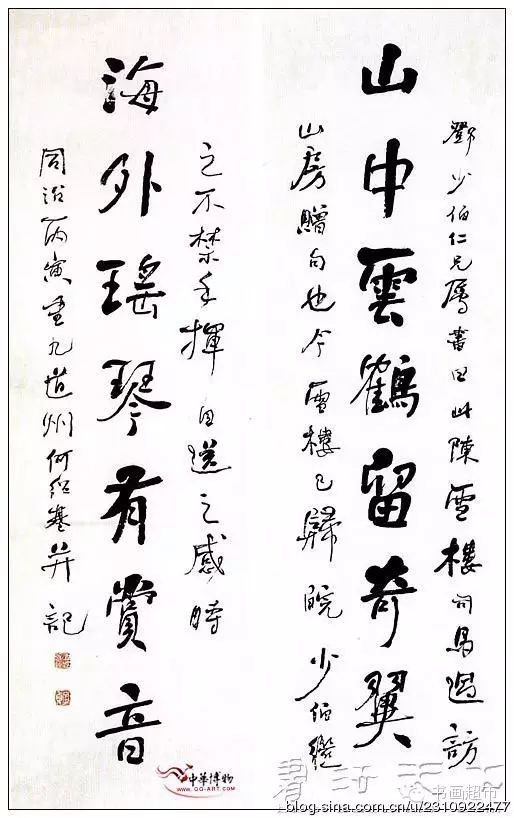 鄧少伯仁兄屬書曰此陳雪樓司馬過訪
山中雲鶴留奇翼
山房贈句也今雪樓已歸皖少伯繼
之不禁手揮目送之感時
海外瑤琴有賞音
同治丙寅重九道州何紹基并記
中華博物
www.GG-ART.COM
书画超市
blog.sina.com.cn/u/2310922477